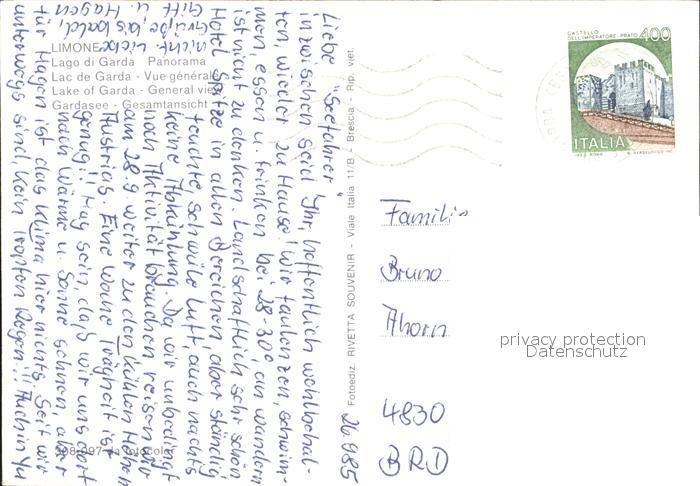 LIMONE
Lago di Garda Panorama
Lac de Garda - Vue générale
Lake of Garda - General view
Gardasee - Gesamtansicht
Fotoediz. RIVETTA SOUVENIR - Viale Italia 11/B - Brescia - Rip. viet.
CASTELLO
DELL'IMPERATORE - PRATO
400
ITALIA
26.9.85
Liebe "Seefahrer"
inzwischen seid Ihr, hoffentlich wohlbehal-
ten, wieder zu Hause! Wir faulenzen, schwim-
men, essen u. trinken bei 28-30°, an wandern
ist nicht zu denken. Landschaftlich sehr schön
Hotel Spitze in allen Bereichen, aber ständig
feuchte, schwüle Luft, auch nachts
keine Abkühlung. Da wir unbedingt
noch Aktivität brauchen reisen wir
am 28.9. weiter zu den kühlen Höhen
Austrias. Eine Woche Trägheit ist
genug!! Mag sein, daß wir uns dort
nach Wärme u. Sonne sehnen, aber
für Hagen ist das Klima hier nichts. Seit wir
unterwegs sind, kein Tropfen Regen!! Auch in Yu
nicht. Liebe
Grüße, bis bald,
u. Hagen
Familie
Bruno
Ahorn
4830
BRD
privacy protection
Datenschutz